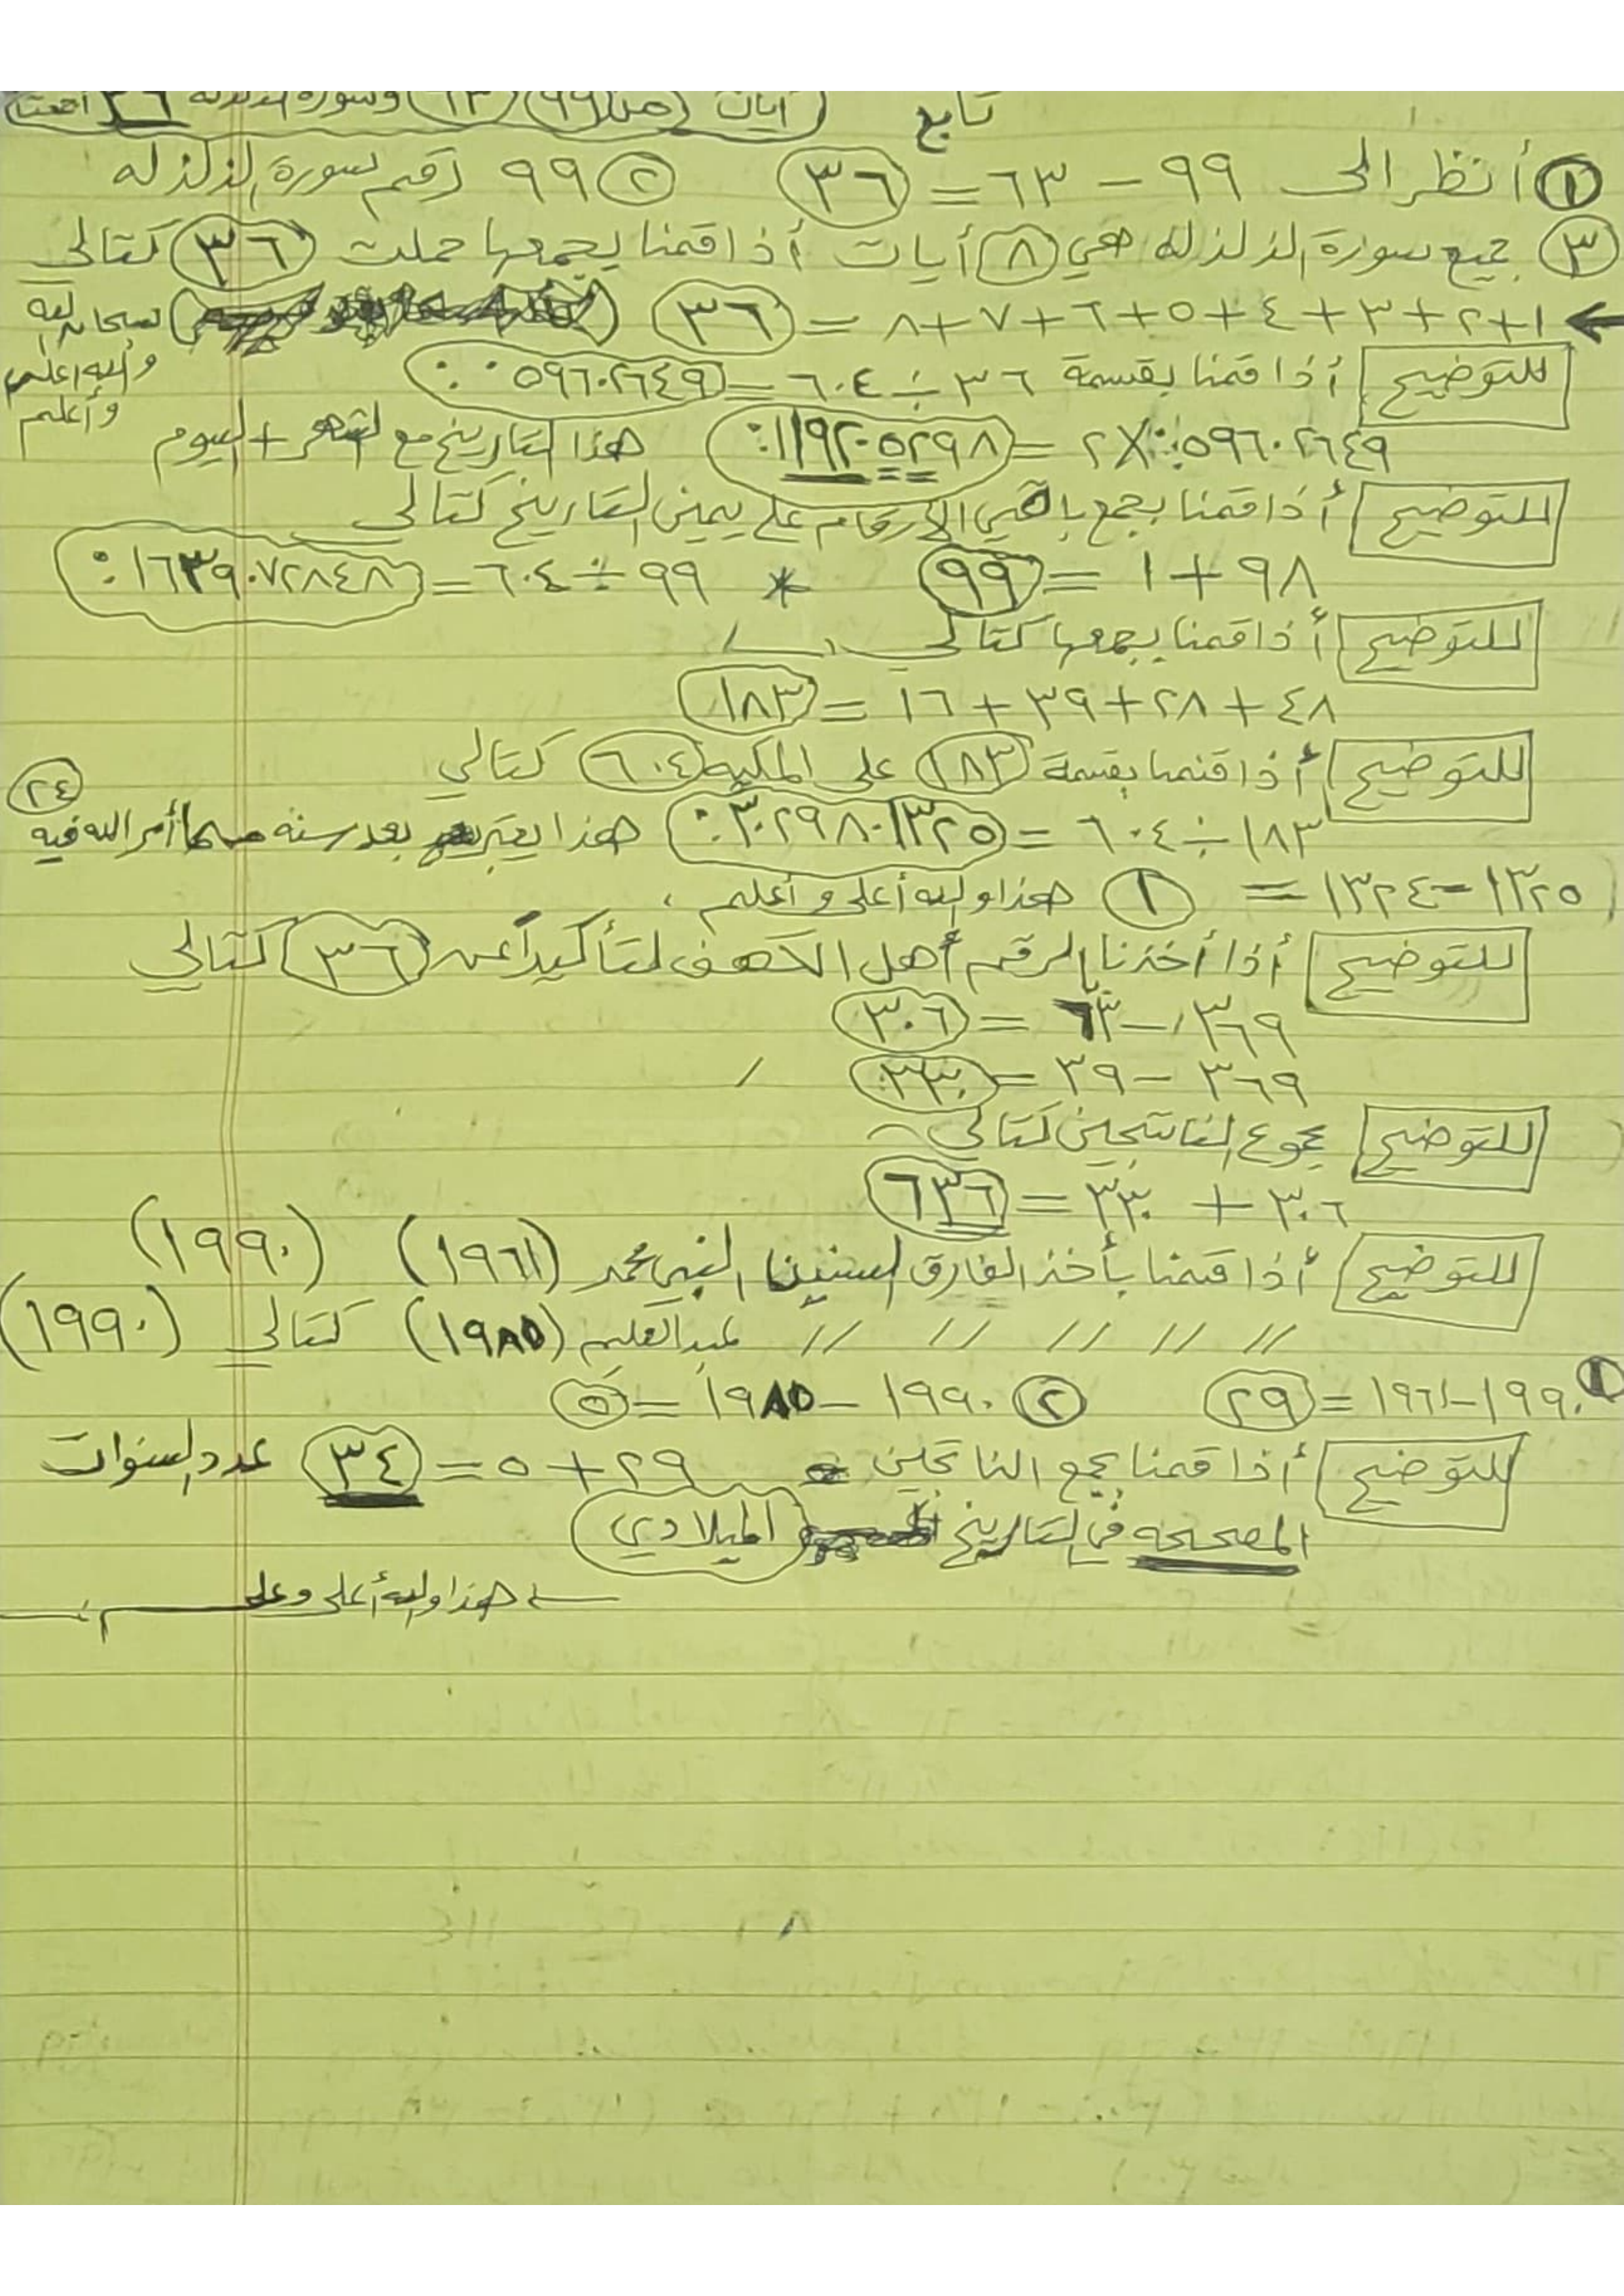 تابع آيات من ٩٩ ٦٣ وسورة الزلزله ٣٦
١ أنظر الى ٩٩ - ٦٣ = ٣٦ ٢ ٩٩ رقم سورة الزلزله
٣ جميع سورة الزلزله هي ٨ أيات أذا قمنا بجمعها حملت ٣٦ كتالي
١+٢+٣+٤+٥+٦+٧+٨ = ٣٦ سبحان الله
والله اعلى
وأعلم
للتوضيح أذا قمنا بقسمة ٣٦ ÷ ٦٠٤ = ٠٥٩٦٠٢٦٤٩.
٠٥٩٦٠٢٦٤٩. X ٢ = ١١٩٢٠٥٢٩٨. هذا التاريخ مع الشهر + اليوم
للتوضيح أذا قمنا بجمع باقي الارقام على يمين التاريخ كتالي
٩٨ + ١ = ٩٩ * ٩٩ ÷ ٦٠٤ = ١٦٣٩٠٧٢٨٤٨.
للتوضيح أذا قمنا بجمعها كتالي
٤٨ + ٢٨ + ٣٩ + ١٦ = ١٨٣
للتوضيح أذا قمنا بقسمة ١٨٣ على المكيه ٦٠٤ كتالي
١٨٣ ÷ ٦٠٤ = ٣٠٢٩٨٠١٣٢٥. هذا يعتبر بعد سنه أمر الله فيه ٢٤
١٣٢٥ - ١٣٢٤ = ١ هذا والله أعلى وأعلم .
للتوضيح أذا أخذنا الرقم أهل الكهف لتأكيداً عن ٣٦ كتالي
٣٦٩ - ٦٣ = ٣٠٦
٣٦٩ - ٣٩ = ٣٣٠
للتوضيح مجموع الناتجين كتالي
٣٠٦ + ٣٣٠ = ٦٣٦
للتوضيح أذا قمنا بأخذ الفارق السنين النبي محمد (١٩٦١) (١٩٩٠)
// // // // // عبدالعليم (١٩٨٥) كتالي (١٩٩٠)
١ ١٩٩٠ - ١٩٦١ = ٢٩ ٢ ١٩٩٠ - ١٩٨٥ = ٥
للتوضيح أذا قمنا بجمع الناتجين ٢٩ + ٥ = ٣٤ عدد السنوات
المصححه في التاريخ الميلادي
هذا والله أعلى وعلم